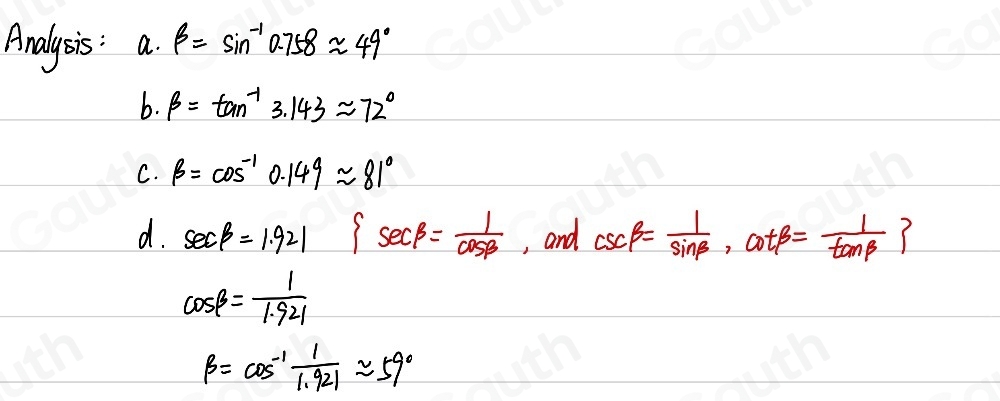 Analysis: a. β = sin⁻¹ 0.758 ≈ 49°
b. β = tan⁻¹ 3.143 ≈ 72°
c. β = cos⁻¹ 0.149 ≈ 81°
d. secβ = 1.921 { secβ = 1/cosβ , and cscβ = 1/sinβ , cotβ = 1/tanβ }
cosβ = 1/1.921
β = cos⁻¹ 1/1.921 ≈ 59°